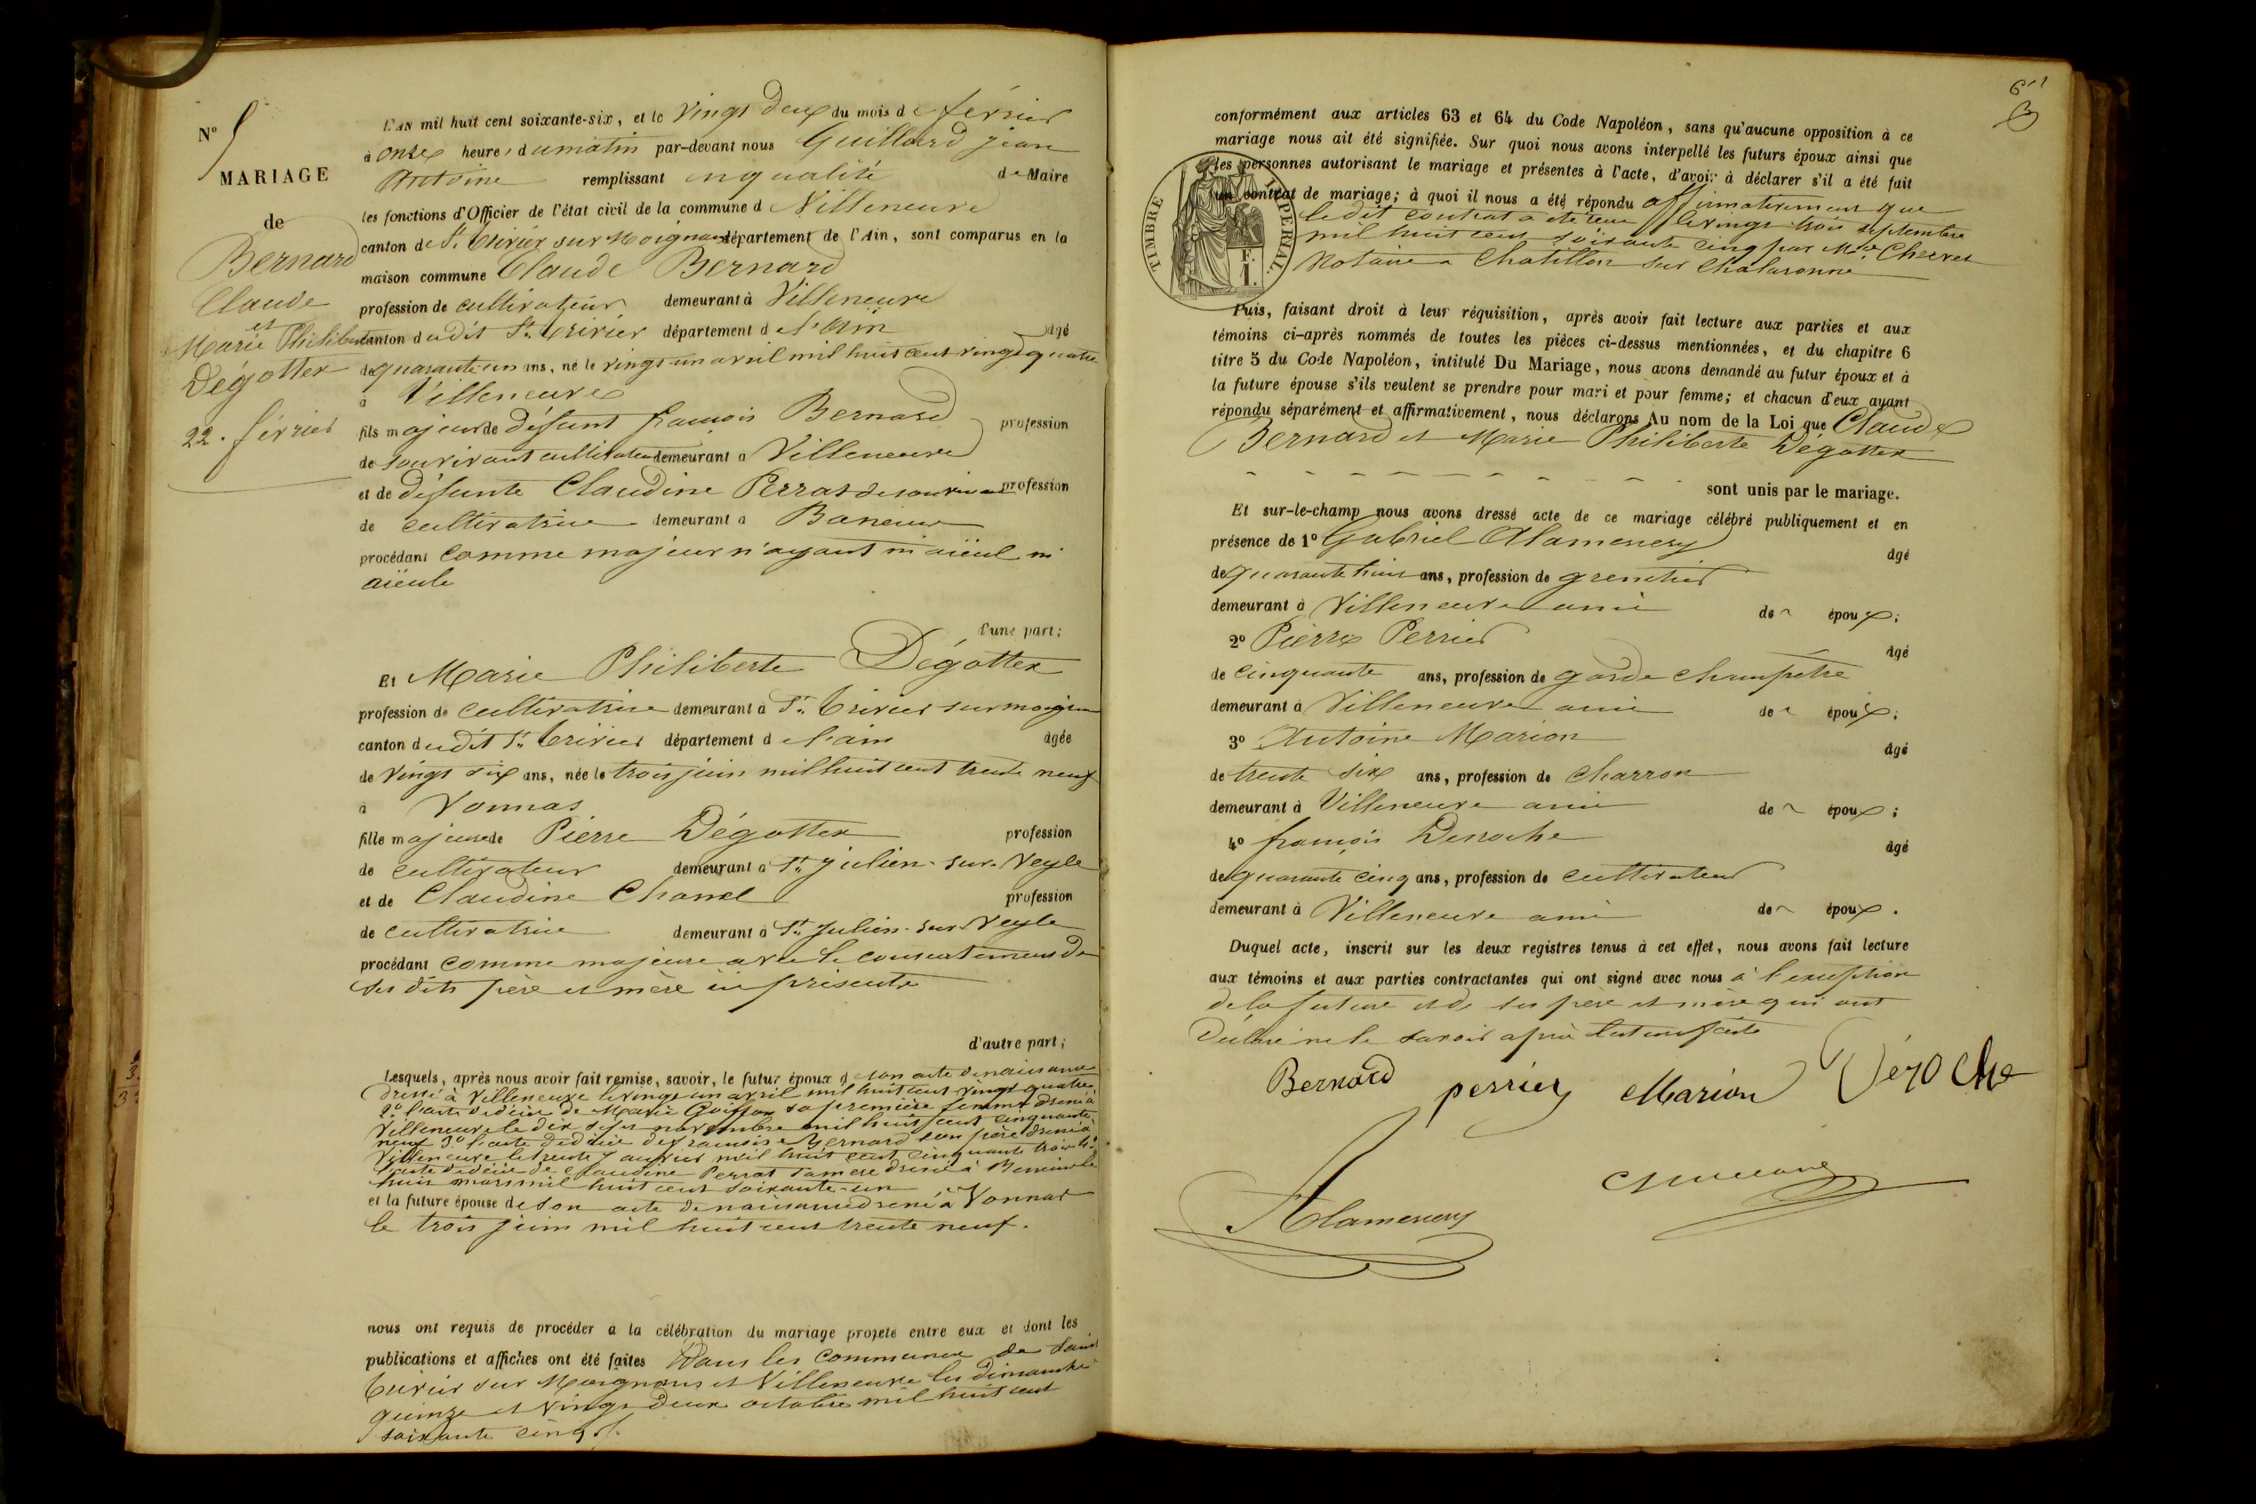 N° 5
MARIAGE
de
Bernard
Claude
et
Marie Philiberte
Dégottex
22. février
L'AN mil huit cent soixante-six, et le vingt deux du mois de février
à onze heures du matin par-devant nous Guillard jean
Antoine remplissant en qualité de Maire
les fonctions d'Officier de l'état civil de la commune d Villeneuve
canton de St. Trivier sur Moignans département de l'Ain, sont comparus en la
maison commune Claude Bernard
profession de cultivateur demeurant à Villeneuve
canton dudit St. Trivier département de l'Ain âgé
de quarante-un ans, né le vingt-un avril mil huit cent vingt quatre
à Villeneuve
fils majeur de défunt françois Bernard profession
de son vivant cultivateur demeurant à Villeneuve
et de défunte Claudine Perrat de son vivant profession
de cultivatrice demeurant à Baneins
procédant comme majeur n'ayant ni aïeul ni
aïeule
d'une part;
Et Marie Philiberte Dégottex
profession de cultivatrice demeurant à St. Trivier sur moignans
canton dudit St. Trivier département de l'ain âgée
de vingt six ans, née le trois juin mil huit cent trente neuf
à Vonnas
fille majeure de Pierre Dégottex profession
de cultivateur demeurant à St. julien-sur-Veyle
et de Claudine Chanel profession
de cultivatrice demeurant à St. Julien-sur-Veyle
procédant comme majeure avec le consentement de
ses dits père et mère ici présents
d'autre part;
Lesquels, après nous avoir fait remise, savoir, le futur époux de son acte de naissance
dressé à Villeneuve le vingt-un avril mil huit cent vingt quatre
2° l'acte de décès de Marie sa première femme dressé à
Villeneuve le dix sept novembre mil huit cent cinquante
neuf 3° l'acte de décès de françois Bernard son père dressé à
Villeneuve le trente janvier mil huit cent cinquante trois 4°
l'acte de décès de Claudine Perrat sa mère dressé à Baneins le
huit mars mil huit cent soixante-un
et la future épouse de son acte de naissance dressé à Vonnas
le trois juin mil huit cent trente neuf.
nous ont requis de procéder à la célébration du mariage projeté entre eux et dont les
publications et affiches ont été faites Dans les communes de saint
Trivier sur Moignans et Villeneuve les dimanches
quinze et vingt deux octobre mil huit cent
soixante cinq.
conformément aux articles 63 et 64 du Code Napoléon, sans qu'aucune opposition à ce
mariage nous ait été signifiée. Sur quoi nous avons interpellé les futurs époux ainsi que
les personnes autorisant le mariage et présentes à l'acte, d'avoir à déclarer s'il a été fait
un contrat de mariage; à quoi il nous a été répondu affirmativement que
le dit contrat a été reçu le vingt trois septembre
mil huit cent soixante cinq par Me.
Notaire à Chatillon sur Chalaronne
TIMBRE IMPERIAL.
F.
1.
Puis, faisant droit à leur réquisition, après avoir fait lecture aux parties et aux
témoins ci-après nommés de toutes les pièces ci-dessus mentionnées, et du chapitre 6
titre 5 du Code Napoléon, intitulé Du Mariage, nous avons demandé au futur époux et à
la future épouse s'ils veulent se prendre pour mari et pour femme; et chacun d'eux ayant
répondu séparément et affirmativement, nous déclarons Au nom de la Loi que Claude
Bernard et Marie Philiberte Dégottex
sont unis par le mariage.
Et sur-le-champ nous avons dressé acte de ce mariage célébré publiquement et en
présence de 1° Gabriel Alamercery âgé
de quarante huit ans, profession de grenetier
demeurant à Villeneuve ami de époux;
2° Pierre Perrier âgé
de cinquante ans, profession de garde champêtre
demeurant à Villeneuve ami de époux;
3° Antoine Marion âgé
de trente six ans, profession de charron
demeurant à Villeneuve ami de époux;
4° françois Desroche âgé
de quarante cinq ans, profession de cultivateur
demeurant à Villeneuve ami de époux.
Duquel acte, inscrit sur les deux registres tenus à cet effet, nous avons fait lecture
aux témoins et aux parties contractantes qui ont signé avec nous à l'exception
de la future et de ses père et mère qui ont
déclaré ne le savoir après lecture faite
Bernard perrier Marion
Alamercery